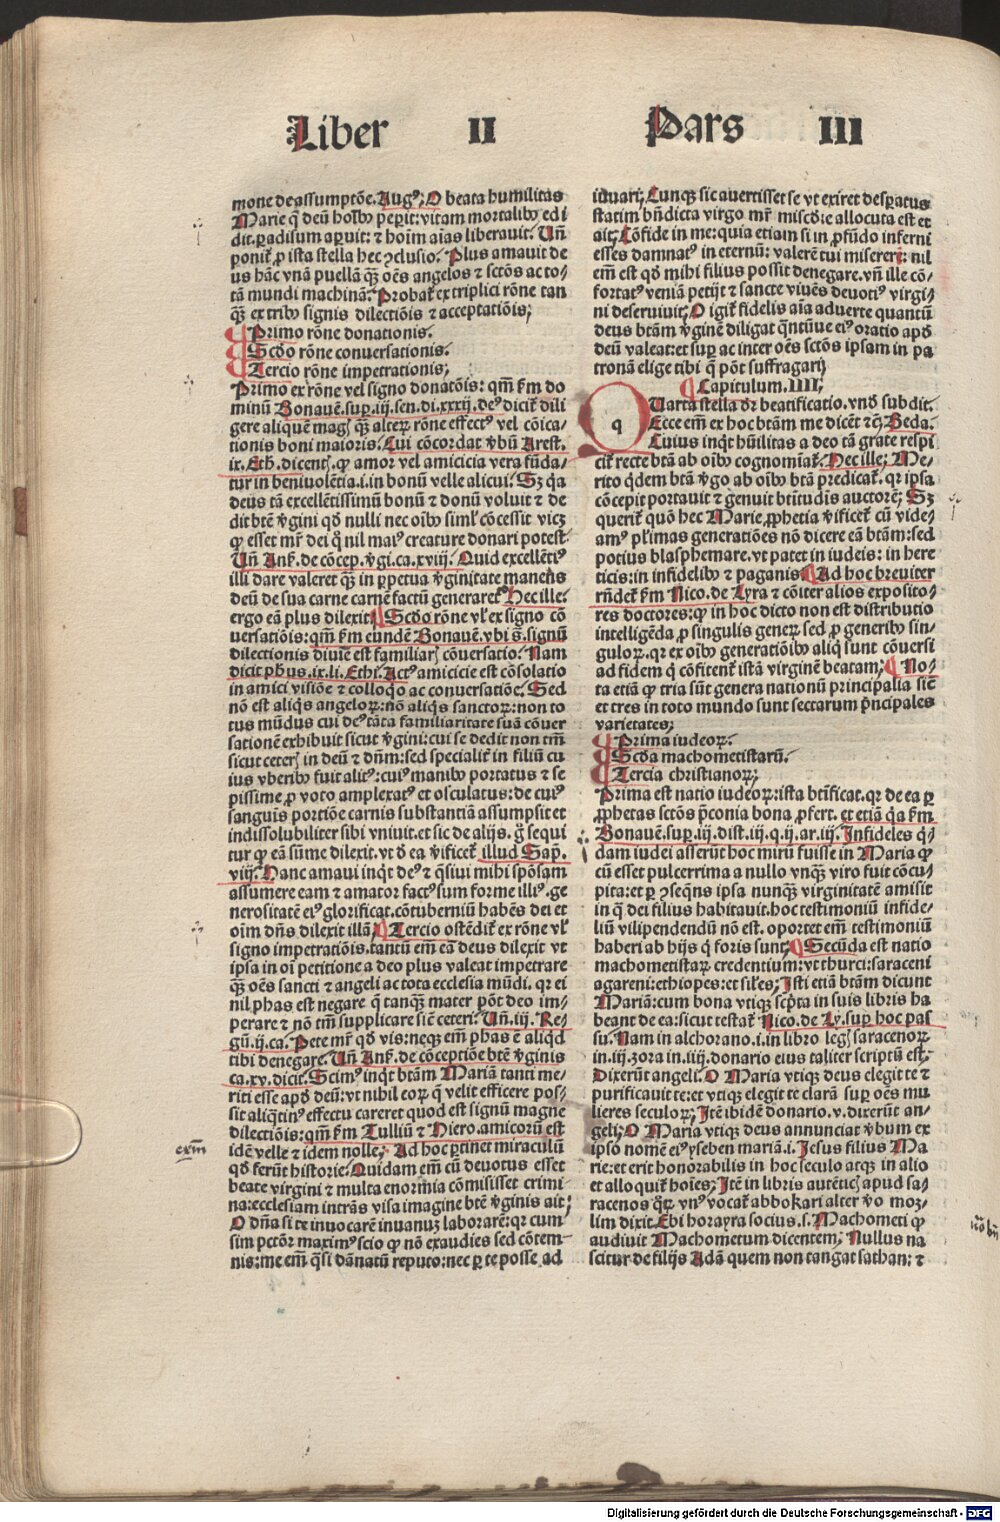 Liber II Pars III
mone de assumptōe. Augꝰ; O beata humilitas
Marie q̄ deū hoībꝰ peperit: vitam mortalibꝰ edi
dit. ꝑadisum aꝑuit: ⁊ hoīm aīas liberauit. Un̄
ponit᷑ ꝓ ista stella hec ꝯclusio. Plus amauit de
us hāc vnā puellā qꝫ oēs angelos ⁊ sctōs ac to⸗
tā mundi machinā. Probat᷑ ex triplici rōne tan
qꝫ ex tribꝰ signis dilectiōis ⁊ acceptatiōis;
¶ Primo rōne donationis.
¶ Scd̄o rōne conuersationis.
¶ Tercio rōne impetrationis;
Primo ex rōne vel signo donatōis: qm̄ ẜm do
minū Bonauē. suꝑ .iij. sen. di. xxxij. deꝰ dicit᷑ dili
gere aliquem magꝭ qꝫ alteꝝ rōne effectꝰ vel cōica⸗
tionis boni maioris. Cui cōcordat ṽbū Arest.
ix. Eth. dicentꝭ. ꝙ amor vel amicicia vera fūda⸗
tur in beniuolētia .i. in bonū velle alicui. Sꝫ q̇a
deus tā excellētissimū bonū ⁊ donū voluit ⁊ de
dit btē ṽgini qd̄ nulli nec oībꝰ simł cōcessit vicꝫ
ꝙ esset mr̄ dei q̇ nil maiꝰ creature donari potest.
Un̄ Anẜ. de cōcep. ṽgi. ca. xviij. Quid excellētiꝰ
illi dare valeret qꝫ in ꝑpetua ṽginitate manens
deū de sua carne carnē factū generaret Hec ille:
ergo eā plus dilexit ¶ Scd̄o rōne vł ex signo cō
uersatiōis: qm̄ ẜm eundē Bonauē. vbi s̄. signū
dilectionis diuīe est familiarꝭ cōuersatio. Nam
dicit ph̄us. ix. li. Ethi. Actꝰ amicicie est cōsolatio
in amici visiōe ⁊ colloq̇o ac conuersatiōe. Sed
nō est aliq̇s angeloꝝ: nō aliq̇s sanctoꝝ: non to
tus mūdus cui deꝰ tāta familiaritate suā cōuer
sationē exhibuit sicut ṽgini: cui se dedit non tm̄
sicut ceterꝭ in deū ⁊ dn̄m: sed specialit᷑ in filiū cu
ius vberibꝰ fuit alitꝰ: cuiꝰ manibꝰ portatus ⁊ se
pissime ꝓ voto amplexatꝰ et osculatus: de cuiꝰ
sanguīs portiōe carnis substantiā assumpsit et
indissolubiliter sibi vniuit. et sic de alijs. g̊ sequi
tur ꝙ eā sūme dilexit. vt ð ea ṽificet᷑ illud Sap̄.
viij. Hanc amaui inq̇t deꝰ ⁊ q̄siui mihi spōsam
assumere eam ⁊ amator factꝰ sum forme illiꝰ. ge
nerositatē eiꝰ glorificat. cōtuberniū habēs dei et
oīm dn̄s dilexit illā ¶ Tercio ostēdit᷑ ex rōne vł
signo impetratiōis. tantū em̄ eā deus dilexit vt
ipsa in oī petitione a deo plus valeat impetrare
qꝫ oēs sancti ⁊ angeli ac tota ecclesia mūdi. qꝛ ei
nil phas est negare q̄ tanqꝫ mater pōt deo im⸗
perare ⁊ nō tm̄ supplicare sic̄ ceteri. Un̄. iij. Re⸗
gū. ij. ca. Pete mr̄ qd̄ vis: neqꝫ em̄ phas ē aliqd̄
tibi denegare. Un̄ Anẜ. de cōceptiōe btē ṽginis
ca. xv. dicit. Scimꝰ inq̇t btām Mariā tanti me⸗
riti esse apd̄ deū: vt nihil eoꝝ q̄ velit efficere pos⸗
sit aliq̄tinꝰ effectu careret quod est signū magne
dilectiōis: qm̄ ẜm Tulliū ⁊ Hiero. amicorū est
idē velle ⁊ idem nolle; Ad hoc ꝑtinet miraculū
qd̄ ferūt historie. Quidam em̄ cū deuotus esset
beate virgini ⁊ multa enormia cōmisisset crimi⸗
na: ecclesiam intrās visa imagine btē ṽginis ait;
O dn̄a si te inuocarē inuanuꝫ laborarē: qꝛ cum
sim petōr maximꝰ scio ꝙ nō exaudies sed cōtem⸗
nis: me em̄ q̄si dānatū reputo: nec ꝑ te posse ad
iuuari; Cunqꝫ sic auertisset se vt exiret desꝑatus
statim bn̄dicta virgo mr̄ miscd̄ie allocuta est et
ait; Cōfide in me: quia etiam si in ꝓfūdo inferni
esses damnatꝰ in eternū: valerē tui misereri: nil
em̄ est qd̄ mihi filius possit denegare. vn̄ ille cō⸗
fortatꝰ veniā petijt ⁊ sancte viuēs deuotiꝰ virgi⸗
ni deseruiuit; O igit᷑ fidelis aīa aduerte quantū
deus btām ṽginē diligat q̄ntūue eiꝰ oratio apd̄
deū valeat: et suꝑ ac inter oēs sctōs ipsam in pa
tronā elige tibi q̄ pōt suffragari;
¶ Capitulum. IIII;
q
Uarta stella dr̄ beatificatio. vnd̄ subdit.
Ecce em̄ ex hoc btām me dicēt ⁊cꝫ Beda.
Cuius inq̇t hūilitas a deo tā grate respi
cit᷑ recte btā ab oībꝰ cognomīat᷑. Hec ille; Me⸗
rito q̇dem btā ṽgo ab oībꝰ btā predicat᷑. qꝛ ipsa
cōcepit portauit ⁊ genuit btītudīs auctorē; Sꝫ
querit᷑ quō hec Marie ꝓphetia ṽificet᷑ cū vide⸗
amꝰ pl̓imas generatiōes nō dicere eā btām: sed
potius blasphemare. vt patet in iudeis: in here
ticis: in infidelibꝰ ⁊ paganis ¶ Ad hoc breuiter
rn̄det᷑ ẜm Nico. de Lyra ⁊ cōiter alios exposito⸗
res doctores: ꝙ in hoc dicto non est distributio
intelligēda ꝓ singulis geneꝝ sed ꝓ generibꝰ sin⸗
guloꝝ. qꝛ ex oībꝰ generatiōibꝰ aliq̇ sunt cōuersi
ad fidem q̇ cōfitent᷑ istā virginē beatam; ¶ No⸗
ta etiā ꝙ tria sūt genera nationū principalia sic̄
et tres in toto mundo sunt sectarum pn̄cipales
varietates;
¶ Prima iudeoꝝ.
¶ Scd̄a machometistarū.
¶ Tercia christianoꝝ;
Prima est natio iudeoꝝ: ista btīficat. qꝛ de ea ꝑ
ꝓphetas sctōs p̄conia bona ꝓfert. et etiā q̇a ẜm
Bonauē. suꝑ. iij. dist. iij. q. ij. ar. iij. Infideles q̇⸗
dam iudei asserūt hoc mirū fuisse in Maria ꝙ
cū esset pulcerrima a nullo vnqꝫ viro fuit cōcu⸗
pita: et ꝑ ꝯseq̄ns ipsa nunqꝫ virginitatē amisit
in q̄ dei filius habitauit. hoc testimoniū infide⸗
liū vilipendendū nō est. oportet em̄ testimoniū
haberi ab hijs q̇ foris sunt; ¶ Secūda est natio
machometistaꝝ credentium: vt thurci: saraceni
agareni: ethiopes: et siłes; Isti etiā btām dicunt
Mariā: cum bona vtiqꝫ sc̄pta in suis libris ha
beant de ea: sicut testat᷑ Nico. de Ly. suꝑ hoc pas
su. Nam in alchorano .i. in libro legꝭ saracenoꝝ
in .iij. zora in .iiij. donario eius taliter scriptū est.
Dixerūt angeli. O Maria vtiqꝫ deus elegit te ⁊
purificauit te: et vtiqꝫ elegit te clarā suꝑ oēs mu
lieres seculoꝝ; Itē ibidē donario. v. dixerūt an⸗
geli; O Maria vtiqꝫ deus annunciat ṽbum ex
ipso nomē eiꝰ yseben mariā .i. Jesus filius Ma
rie: et erit honorabilis in hoc seculo atqꝫ in alio
et alloquit᷑ hoīes; Itē in libris autēticꝭ apud sa⸗
racenos q̇ꝝ vnꝰ vocat᷑ abbokari alter ṽo moz⸗
lim dixit Ebi horayra socius .s. Machometi ꝙ
audiuit Machometum dicentem; Nullus na
scitur de filijs Adā quem non tangat sathan: ⁊
exm̄
Digitalisierung gefördert durch die Deutsche Forschungsgemeinschaft - DFG